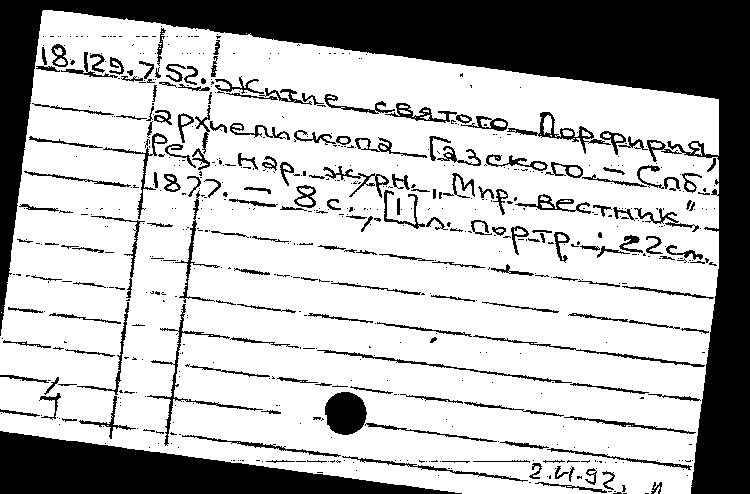 18.129.7.52. Житие святого Порфирия,
архиепископа Газского. – Спб.:
Ред. нар. журн. „Мир. вестник",
1877. – 8 с., [1] л. портр. ; 22см.
4
2.VI-92.